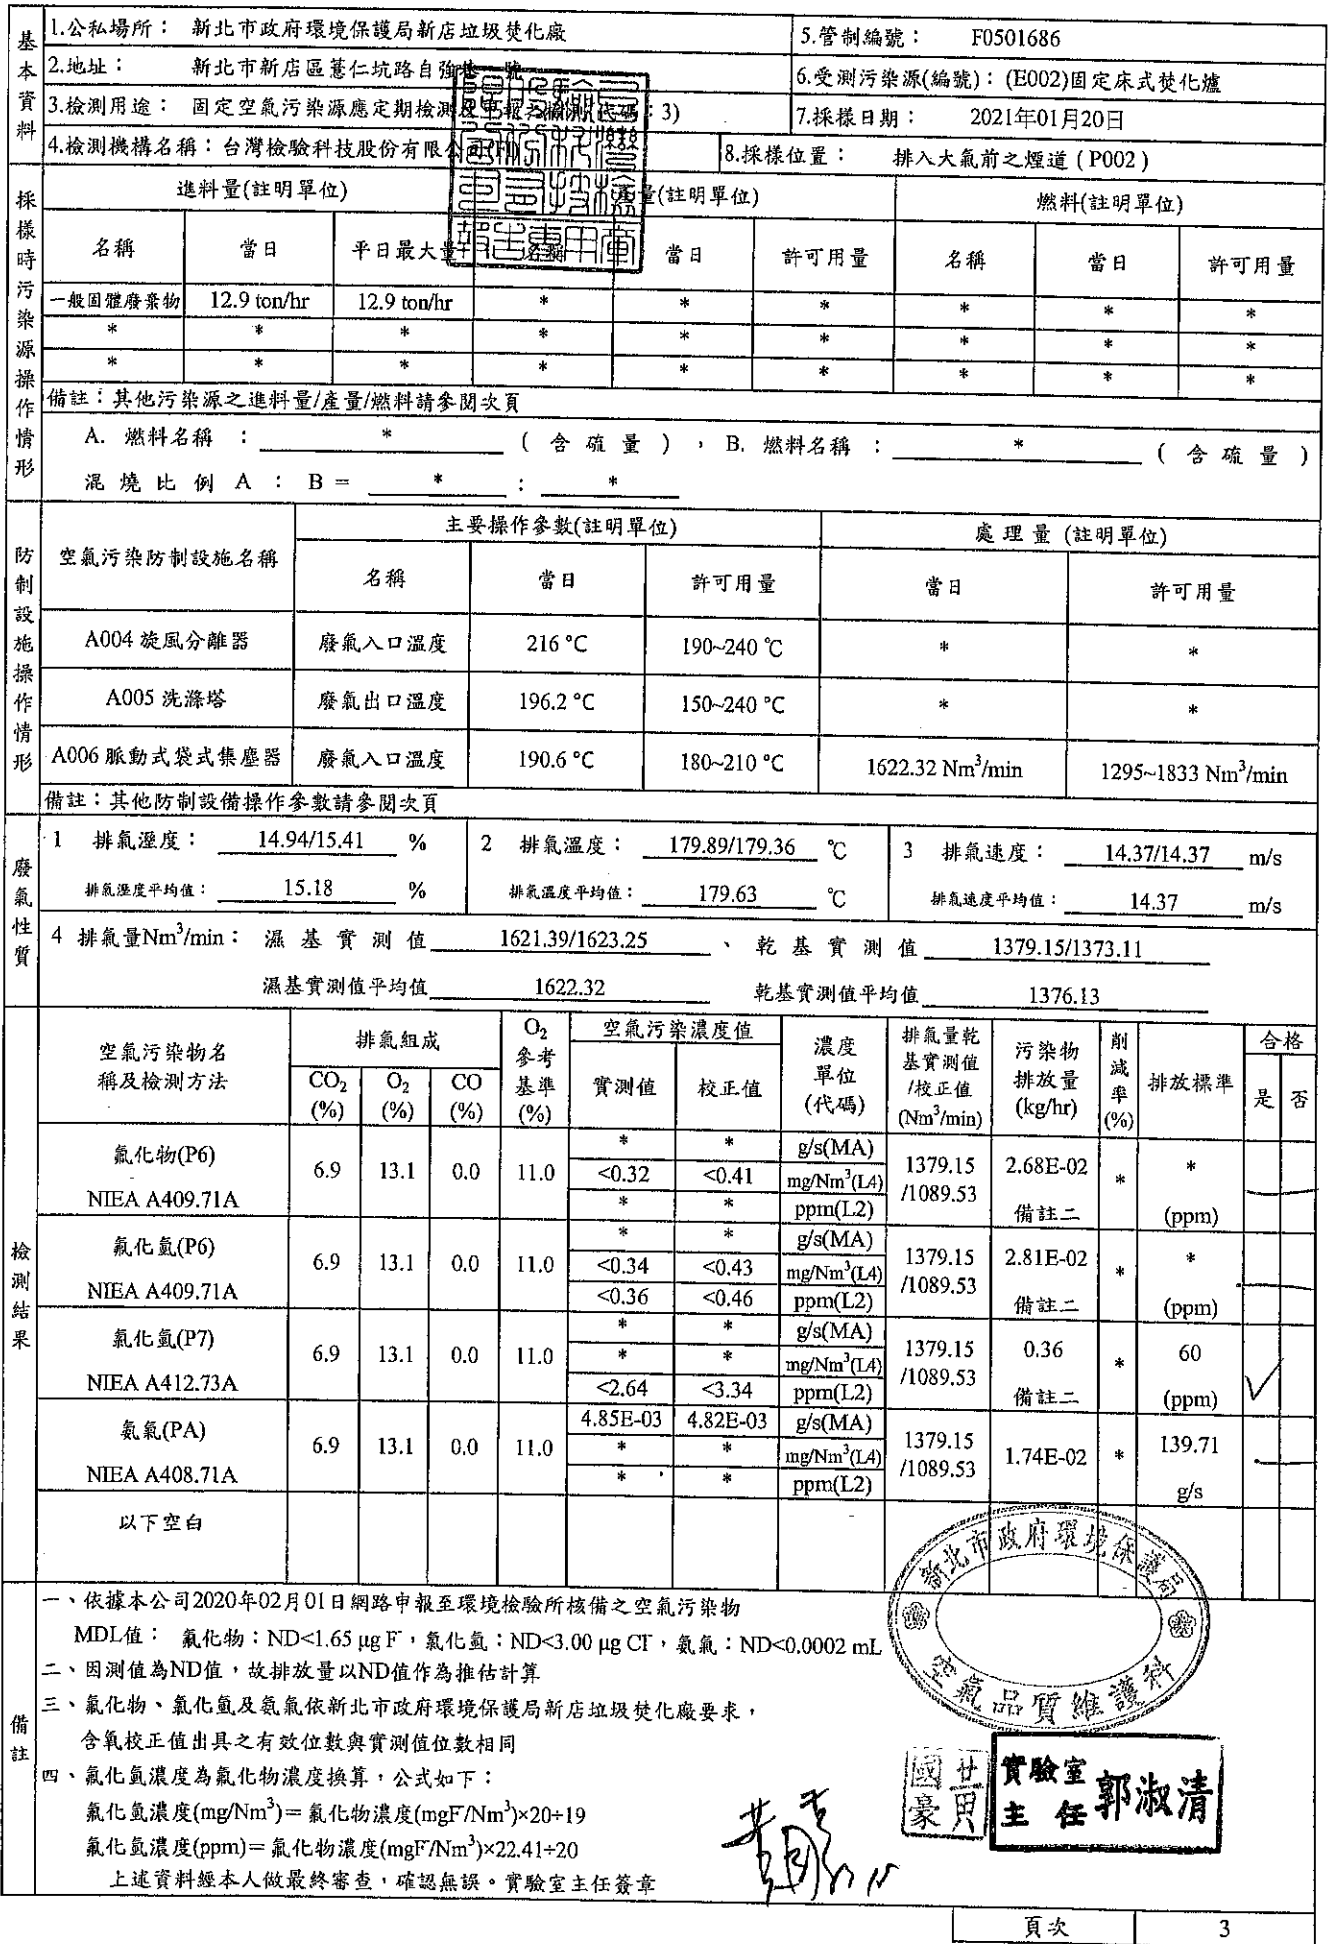 基本資料
1.公私場所： 新北市政府環境保護局新店垃圾焚化廠
5.管制編號： F0501686
2.地址： 新北市新店區薏仁坑路自強巷 號
6.受測污染源(編號)：(E002)固定床式焚化爐
3.檢測用途： 固定空氣污染源應定期檢測及申報之檢測(代碼：3)
7.採樣日期： 2021年01月20日
4.檢測機構名稱：台灣檢驗科技股份有限公司(FI)
8.採樣位置： 排入大氣前之煙道（P002）
採樣時污染源操作情形
進料量(註明單位) 產量(註明單位) 燃料(註明單位)
名稱 當日 平日最大量 名稱 當日 許可用量 名稱 當日 許可用量
一般固體廢棄物 12.9 ton/hr 12.9 ton/hr * * * * * *
* * * * * * * * *
* * * * * * * * *
備註：其他污染源之進料量/產量/燃料請參閱次頁
A. 燃料名稱 ： * （ 含 硫 量 ） ，B. 燃料名稱 ： * （ 含 硫 量 ）
混 燒 比 例 A ： B = * ： *
防制設施操作情形
空氣污染防制設施名稱 主要操作參數(註明單位) 處 理 量 (註明單位)
名稱 當日 許可用量 當日 許可用量
A004 旋風分離器 廢氣入口溫度 216 °C 190~240 °C * *
A005 洗滌塔 廢氣出口溫度 196.2 °C 150~240 °C * *
A006 脈動式袋式集塵器 廢氣入口溫度 190.6 °C 180~210 °C 1622.32 Nm³/min 1295~1833 Nm³/min
備註：其他防制設備操作參數請參閱次頁
廢氣性質
1 排氣溼度： 14.94/15.41 % 2 排氣溫度： 179.89/179.36 °C 3 排氣速度： 14.37/14.37 m/s
排氣溼度平均值： 15.18 % 排氣溫度平均值： 179.63 °C 排氣速度平均值： 14.37 m/s
4 排氣量Nm³/min： 濕 基 實 測 值 1621.39/1623.25 、 乾 基 實 測 值 1379.15/1373.11
濕基實測值平均值 1622.32 乾基實測值平均值 1376.13
檢測結果
空氣污染物名稱及檢測方法 排氣組成 O₂參考基準(%) 空氣污染濃度值 濃度單位(代碼) 排氣量乾基實測值/校正值(Nm³/min) 污染物排放量(kg/hr) 削減率(%) 排放標準 合格
CO₂(%) O₂(%) CO(%) 實測值 校正值 是 否
氟化物(P6) NIEA A409.71A 6.9 13.1 0.0 11.0 1379.15/1089.53 2.68E-02 備註二 * * (ppm)
* * g/s(MA)
<0.32 <0.41 mg/Nm³(L4)
* * ppm(L2)
氟化氫(P6) NIEA A409.71A 6.9 13.1 0.0 11.0 1379.15/1089.53 2.81E-02 備註二 * * (ppm)
* * g/s(MA)
<0.34 <0.43 mg/Nm³(L4)
<0.36 <0.46 ppm(L2)
氯化氫(P7) NIEA A412.73A 6.9 13.1 0.0 11.0 1379.15/1089.53 0.36 備註二 * 60 (ppm) ✓
* * g/s(MA)
* * mg/Nm³(L4)
<2.64 <3.34 ppm(L2)
氨氣(PA) NIEA A408.71A 6.9 13.1 0.0 11.0 1379.15/1089.53 1.74E-02 * 139.71 g/s
4.85E-03 4.82E-03 g/s(MA)
* * mg/Nm³(L4)
* * ppm(L2)
以下空白
備註
一、依據本公司2020年02月01日網路申報至環境檢驗所核備之空氣污染物
MDL值： 氟化物：ND<1.65 μg F⁻，氯化氫：ND<3.00 μg Cl⁻，氨氣：ND<0.0002 mL
二、因測值為ND值，故排放量以ND值作為推估計算
三、氟化物、氯化氫及氨氣依新北市政府環境保護局新店垃圾焚化廠要求，
含氧校正值出具之有效位數與實測值位數相同
四、氟化氫濃度為氟化物濃度換算，公式如下：
氟化氫濃度(mg/Nm³)＝氟化物濃度(mgF⁻/Nm³)×20÷19
氟化氫濃度(ppm)＝氟化物濃度(mgF⁻/Nm³)×22.41÷20
上述資料經本人做最終審查，確認無誤。實驗室主任簽章
新北市政府環境保護局
空氣品質維護科
實驗室主任 郭淑清
頁次 3